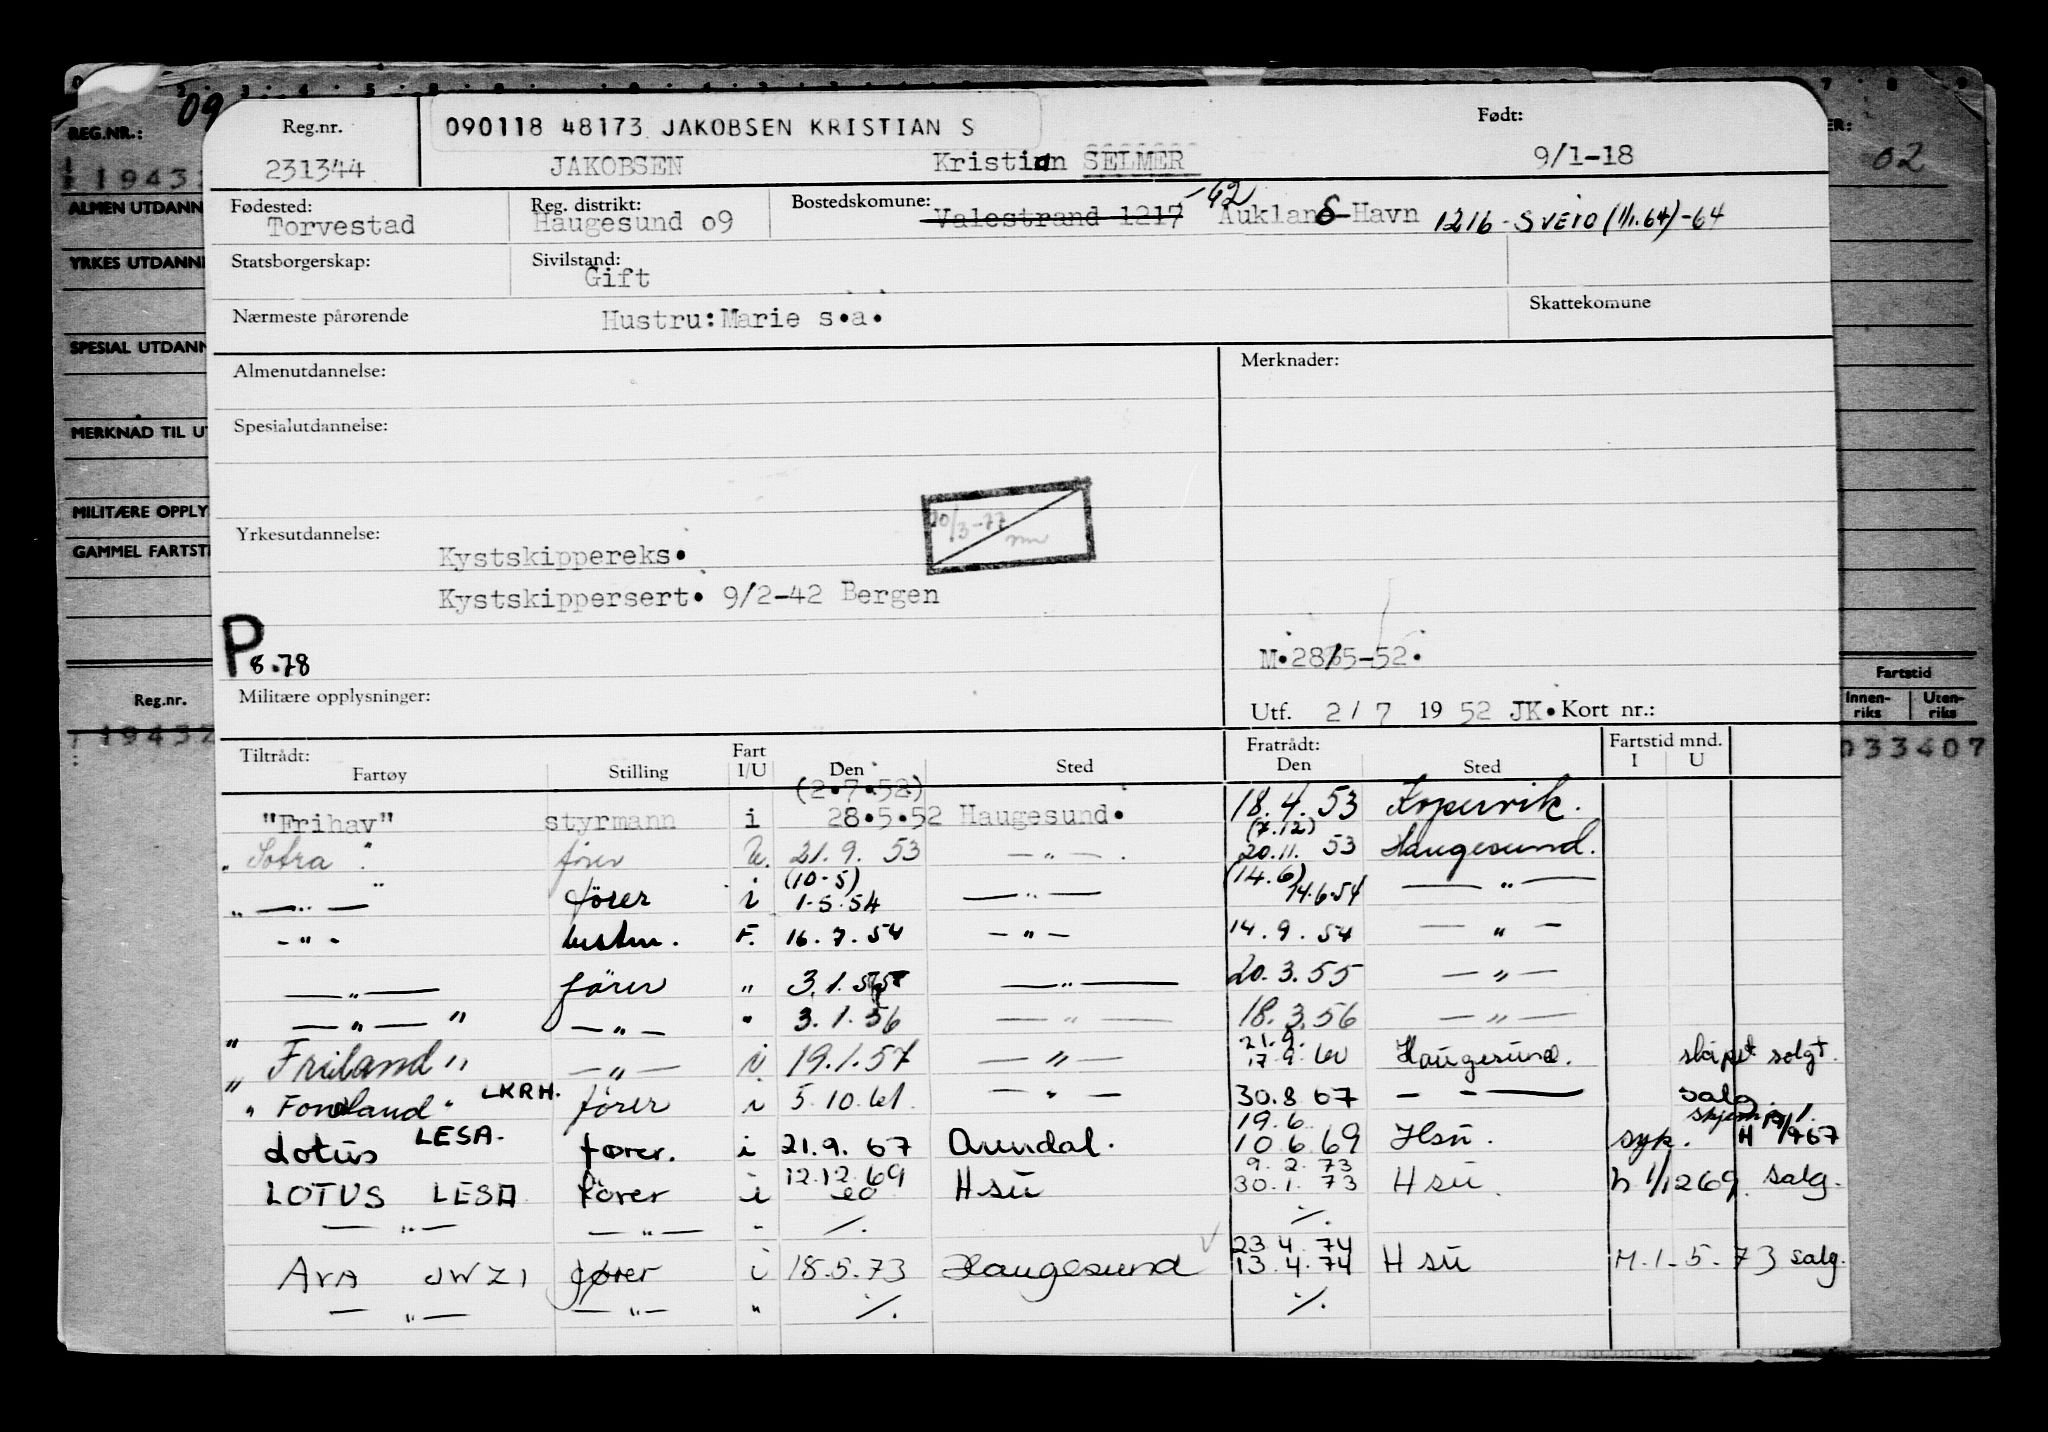 09
Reg.nr. 090118 48173 JAKOBSEN KRISTIAN S Født:
231344 JAKOBSEN Kristian SELMER 9/1-18
REG.NR.:
19432
02
Fødested: Reg. distrikt: Bostedskomune: -62
Torvestad Haugesund 09 Valestrand 1217 Auklands Havn 1216 - SVEIO (1/1.64) -64
Statsborgerskap: Sivilstand:
Gift
Nærmeste pårørende Hustru: Marie s.a. Skattekomune
Almenutdannelse: Merknader:
Spesialutdannelse:
20/3-77
Yrkesutdannelse:
Kystskippereks.
Kystskippersert. 9/2-42 Bergen
P 8.78
M. 28/5-52.
Militære opplysninger: Utf. 2/7 1952 JK. Kort nr.:
ALMEN UTDANN
YRKES UTDANNE
SPESIAL UTDANN
MERKNAD TIL UT
MILITÆRE OPPLY
GAMMEL FARTST
Reg.nr.
19432
Fartstid
Innen-riks Uten-riks
033407
Tiltrådt: Fart Fratrådt: Fartstid mnd.
Fartøy Stilling I/U Den Sted Den Sted I U
(2.7.52)
"Frihav" styrmann i 28.5.52 Haugesund. 18.4.53 Kopervik.
(7.12)
"Sotra" fører U. 21.9.53 — " — . 20.11.53 Haugesund.
(10-5) (14.6)
" — " — " fører i 1.5.54 — " — 14.6.54 — " —
- " - F. 16.7.54 — " — 14.9.54 — " —
— " — fører " 3.1.55 — " — 20.3.55 — " —
" — " — " — " — " 3.1.56 — " — 18.3.56 — " —
21.9.
" Friland " — " — i 19.1.57 — " — 17.9.60 Haugesund. skipet solgt.
" Fonnland " LKRH. fører i 5.10.61 — " — 30.8 67 — " — salg
19.6.
Lotus LESA. fører. i 21.9.67 Arendal. 10 6 69 Hsu. syk.
12.12.69 9.2.73
LOTUS LESA fører i Hsu 30.1.73 Hsu. h 1/12 69. salg.
— " — — " — - ./. ./.
23 4.74
AVA JWZI fører i 18.5.73 Haugesund 13.4.74 Hsu M.1-5.73 salg.
— " — — " — " ./. ./.